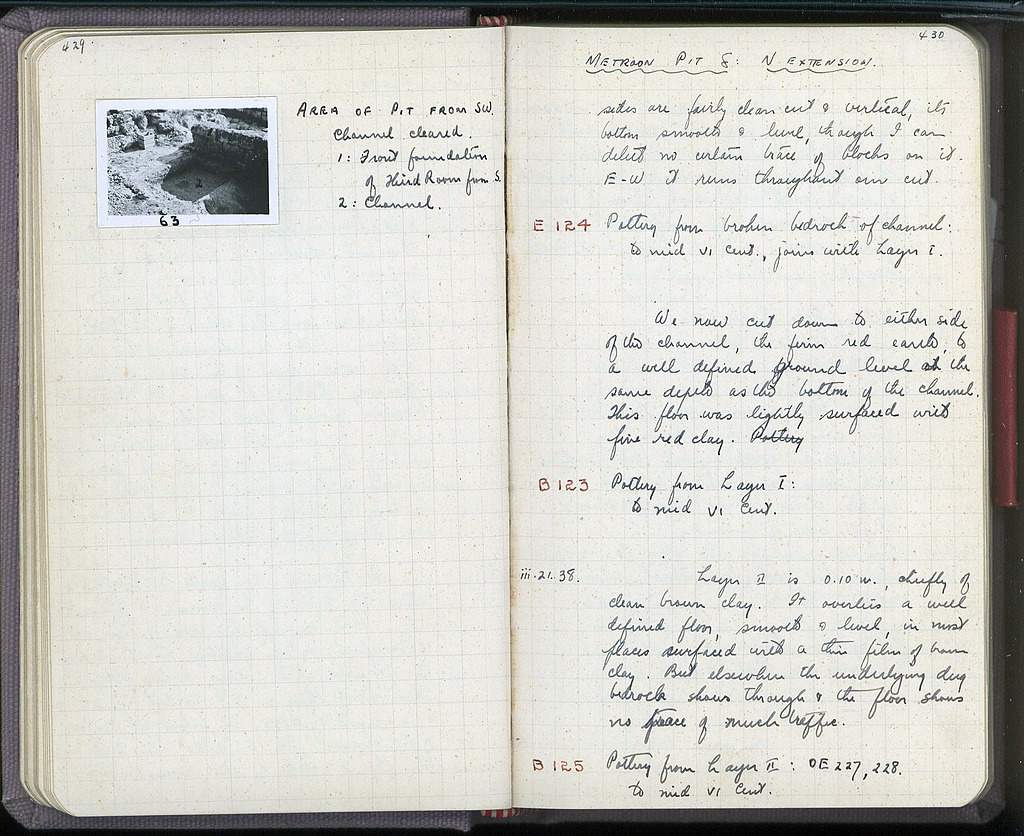 429
AREA OF PIT FROM SW.
Channel cleared.
1: Front foundation
of Third Room from S.
2: Channel.
2
63
430
METROON PIT G: N EXTENSION.
sides are fairly clean cut & vertical, its
bottom smooth & level, though I can
detect no certain trace of blocks on it.
E-W it runs throughout our cut.
E 124 Pottery from broken bedrock of channel:
to mid VI cent., joins with Layer I.
We now cut down to either side
of the channel, the firm red earth, to
a well defined ground level at the
same depth as the bottom of the channel.
This floor was lightly surfaced with
fine red clay. Pottery
B 123 Pottery from Layer I:
to mid VI Cent.
iii.21.38. Layer II is 0.10 m., chiefly of
clean brown clay. It overlies a well
defined floor, smooth & level, in most
places surfaced with a thin film of brown
clay. But elsewhere the underlying dug
bedrock shows through & the floor shows
no trace of much traffic.
B 125 Pottery from Layer II: OE 227, 228.
to mid VI Cent.